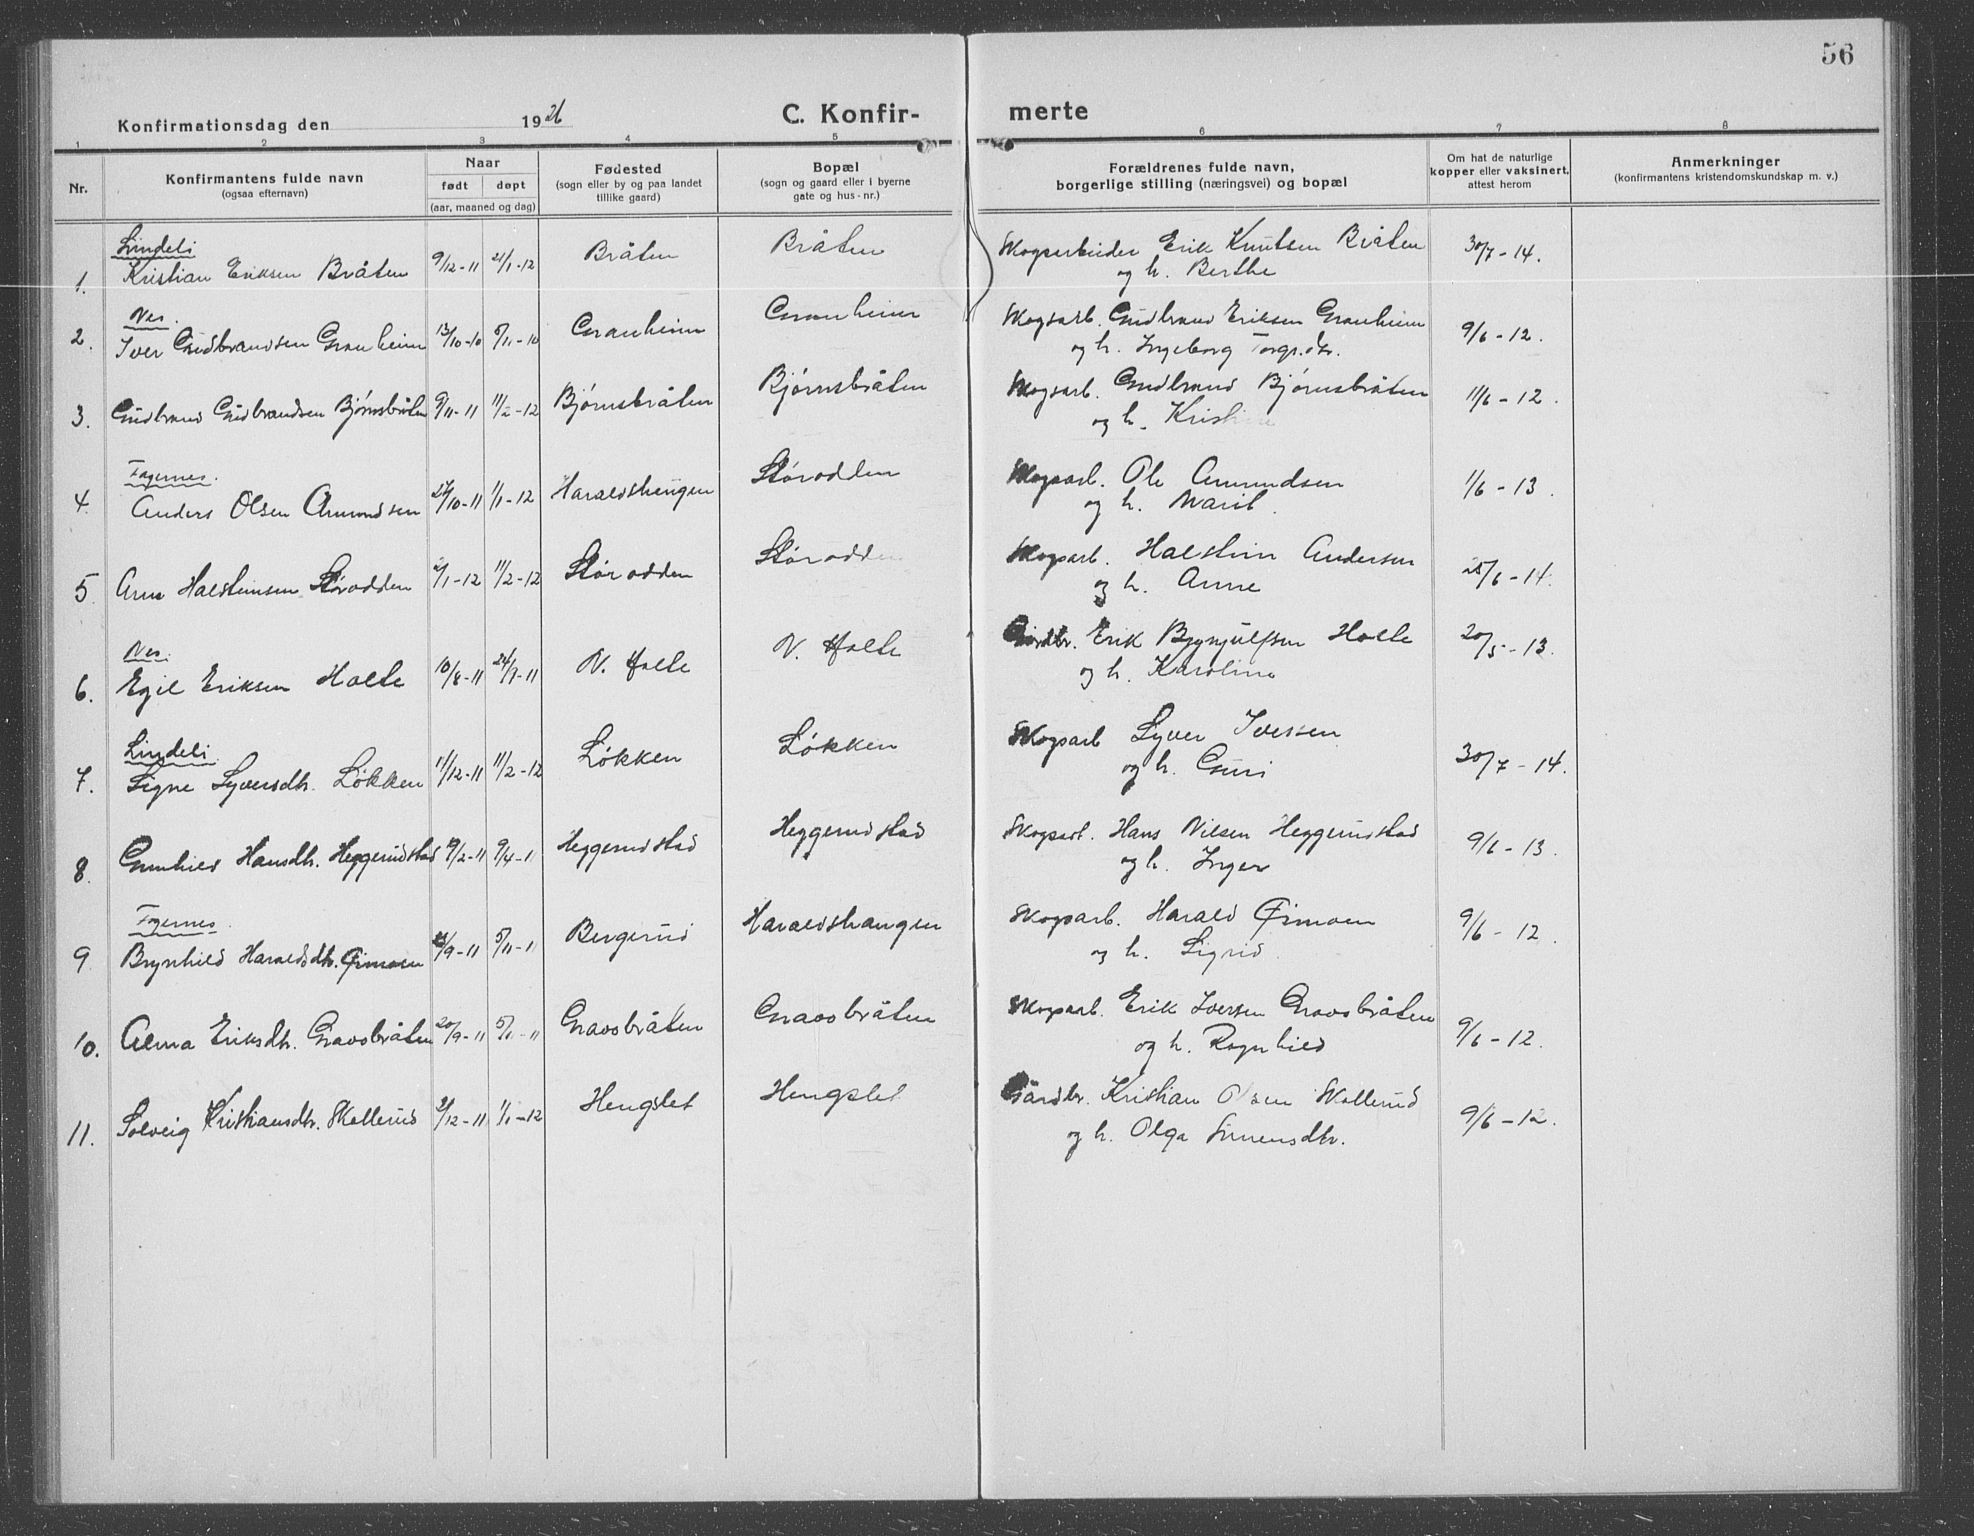 56
Konfirmationsdag den 1926 C. Konfir- merte
1 2 3 4 5 6 7 8
Nr. Konfirmantens fulde navn (ogsaa efternavn) Naar født døpt (aar, maaned og dag) Fødested (sogn eller by og paa landet tillike gaard) Bopæl (sogn og gaard eller i byerne gate og hus-nr.) Forældrenes fulde navn, borgerlige stilling (næringsvei) og bopæl Om hat de naturlige kopper eller vaksinert, attest herom Anmerkninger (konfirmantens kristendomskundskap m. v.)
Lindeli
1. Kristian Eriksen Bråten 9/12-11 21/1-12 Bråten Bråten Skogsarbeider Erik Knutsen Bråten 30/7-14.
og h. Berthe
Nes.
2. Iver Gudbrandsen Granheim 13/10-10 5/11-10 Granheim Granheim Skogsarb. Gudbrand Eriksen Granheim 9/6-12.
og h. Ingeborg Torgr.dtr.
3. Gudbrand Gudbrandsen Bjørnsbråten 9/11-11 11/2-12 Bjørnsbråten Bjørnsbråten Skogsarb. Gudbrand Bjørnsbråten 11/6-12.
og h. Kristine
Fagernes.
4. Anders Olsen Amundsen 27/10-11 1/1-12 Haraldshengen Størodden Skogsarb. Ole Amundsen 1/6-13.
og h. Marit.
5. Arne Halsteinsen Størodden 2/1-12 11/2-12 Størodden Størodden Skogsarb. Halstein Andersen 25/6-14.
og h. Anne
Nes.
6. Egil Eriksen Holte 10/8-11 24/9-11 N. Holte N. Holte Gårdbr. Erik Brynjulfsen Holte 20/5-13.
og h. Karoline
Lindeli
7. Signe Syversdtr. Løkken 11/12-11 11/2-12 Løkken Løkken Skogsarb Syver Iversen 30/7-14.
og h. Guri
8. Gunhild Hansdtr. Heggerudstad /2-11 9/4-11 Heggerudstad Heggerudstad Skogsarb. Hans Nilsen Heggerudstad 9/6-13.
og h. Inger
Fagernes.
9 Brynhild Haraldsdtr. Ørmoen /9-11 5/11-11 Bergerud Haraldshaugen Skogsarb. Harald Ørmoen 9/6-12.
og h. Sigrid.
10. Alma Eriksdtr. Gravsbråten 20/9-11 5/11-11 Gravsbråten Gravsbråten Skogsarb. Erik Iversen Gravsbråten 9/6-12.
og h. Ragnhild
11. Solveig Kristiansdtr. Skollerud /12-11 1/1-12 Hengslet Hengslet Gårdbr. Kristian Olsen Skollerud 9/6-12.
og h. Olga Simensdtr.